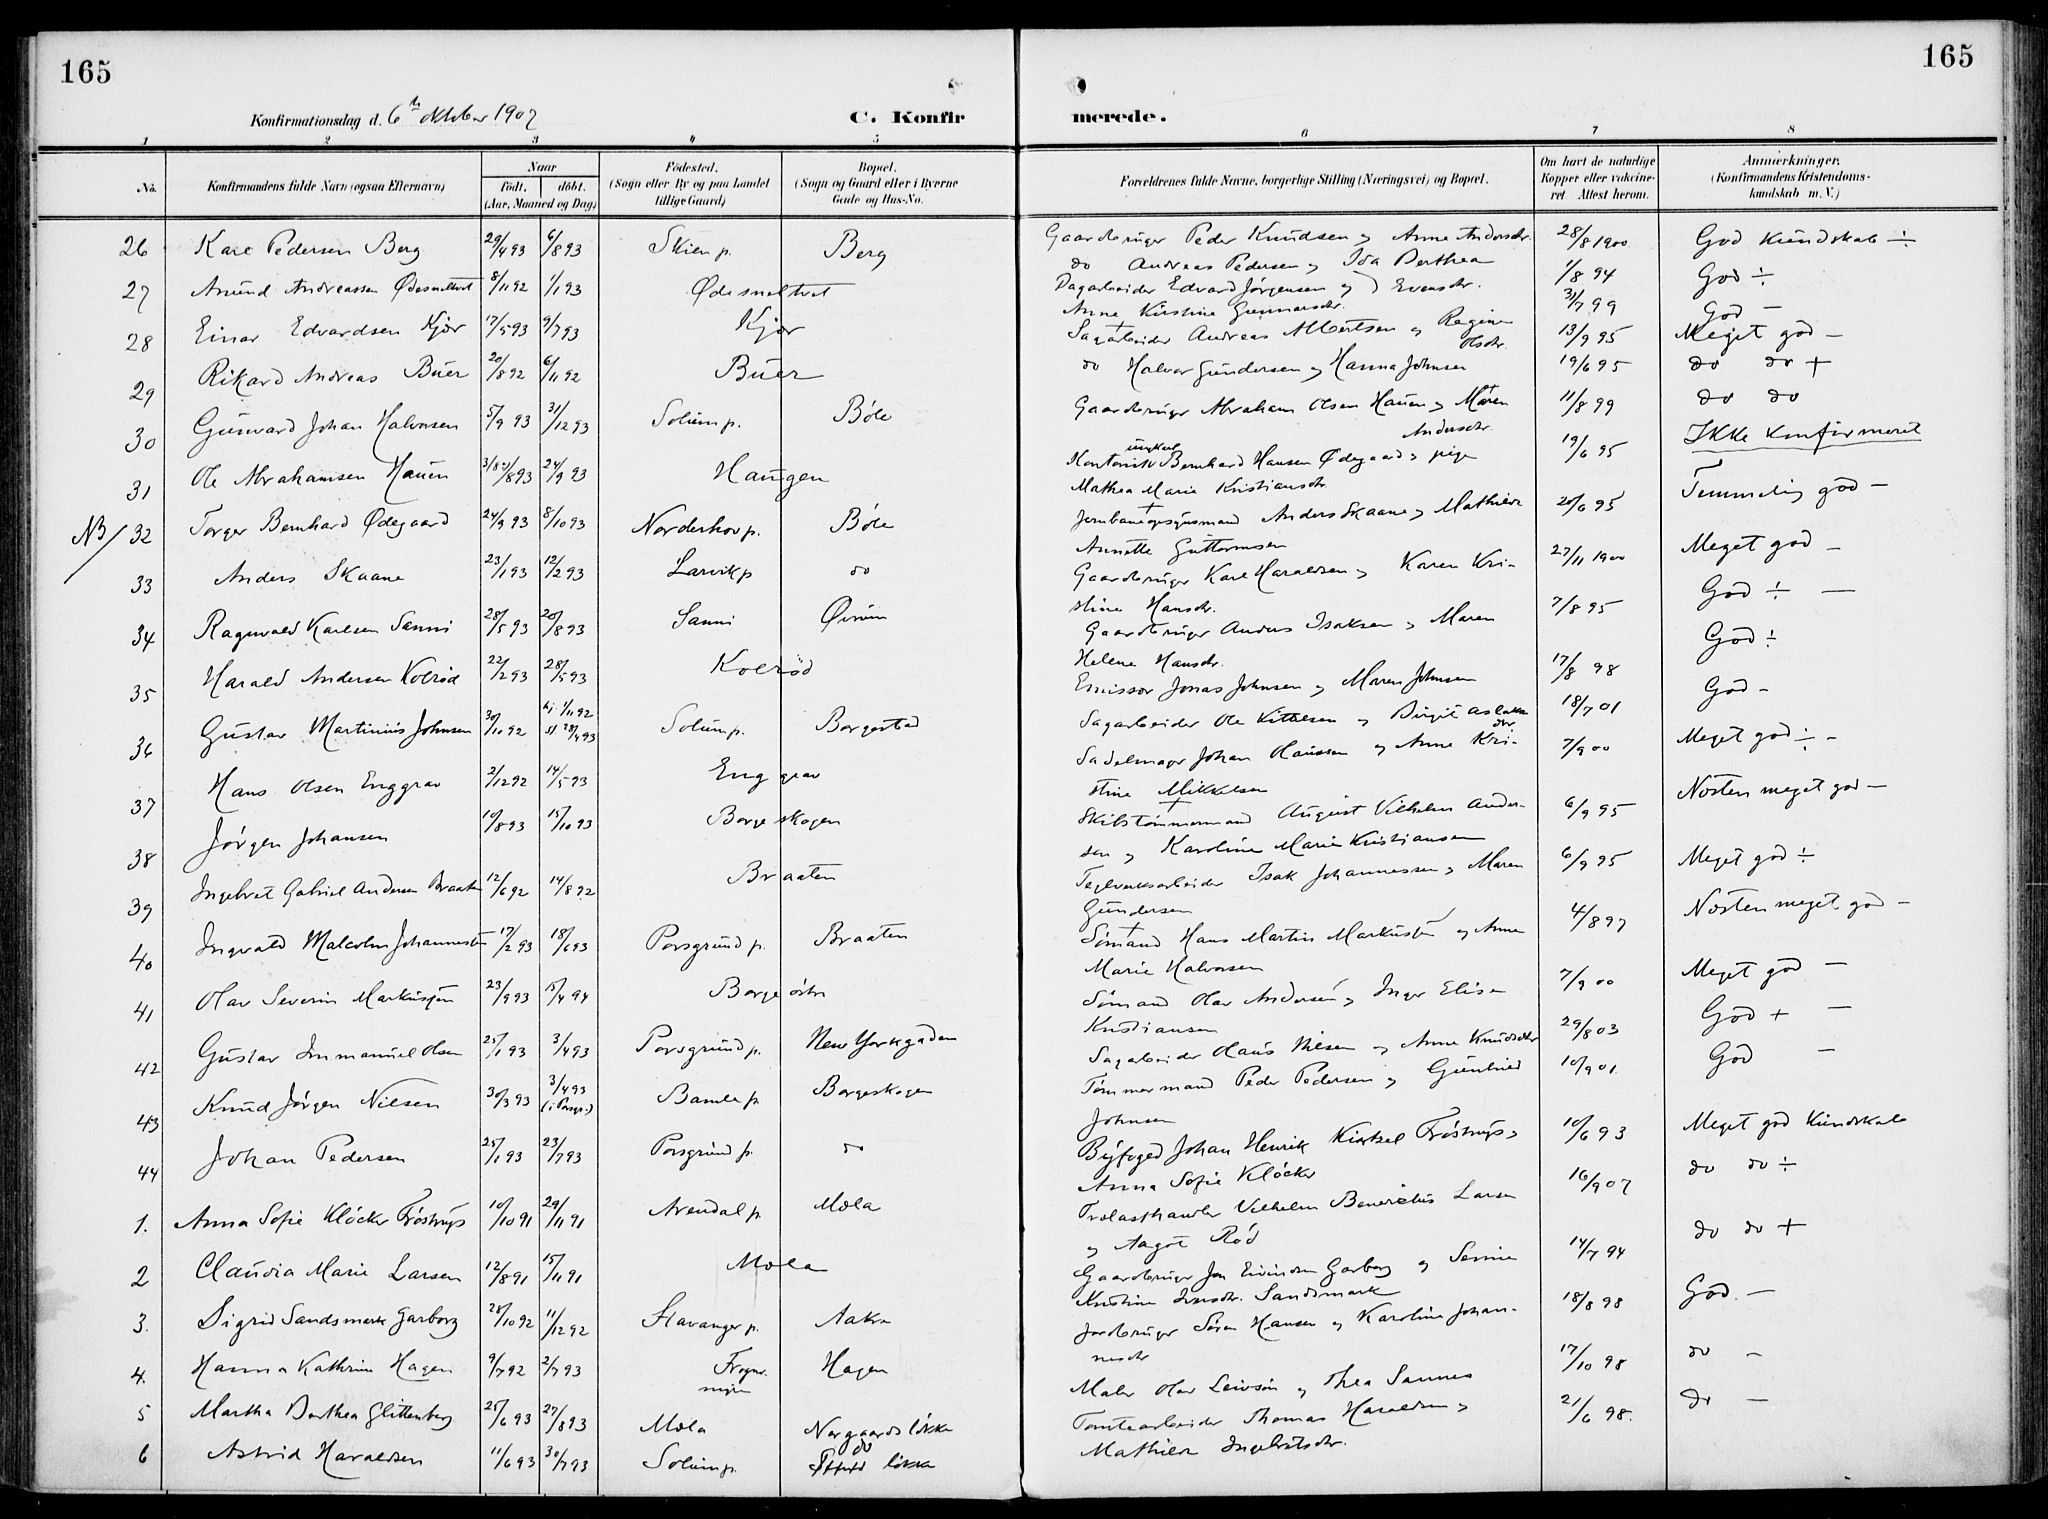 165
165
Konfirmationsdag d. 6te Oktober 1907
C. Konfir
merede.
1 2 3 4 5 6 7 8
No.
Konfirmandens fulde Navn (ogsaa Efternavn)
Naar
født. døbt.
(Aar, Maaned og Dag)
Fødested.
(Sogn eller By og paa Landet
tillige Gaard)
Bopæl.
(Sogn og Gaard eller i Byerne
Gade og Hus-No.
Forældrenes fulde Navne, borgerlige Stilling (Næringsvei) og Bopæl.
Om havt de naturlige
Kopper eller vakcine-
ret Attest herom.
Anmærkninger.
(Konfirmandens Kristendoms-
kundskab m. V.)
26 Karl Pedersen Berg 29/4 93 6/8 93 Skien p. Berg
27 Amund Andreassen Ødesneltvet 8/11 92 1/1 93 Ødesneltvet
28 Einar Edvardsen Kjør 17/5 93 9/7 93 Kjør
29 Rikard Andreas Buer 20/8 92 6/11 92 Buer
30 Gunvard Johan Halvorsen 5/9 93 31/12 93 Solum p. Bøle
31 Ole Abrahamsen Hauen 24/9 93 Haugen
NB/ 32 Torger Bernhard Ødegaard 24/9 93 8/10 93 Norderhov p. Bøle
33 Anders Skaane 23/1 93 12/2 93 Larvik p do
34 Ragnvald Karlsen Sanni 28/5 93 20/8 93 Sanni Ørum
35 Harald Andersen Kolrød 22/2 93 28/5 93 Kolrød
36 Gustav Martinius Johnsen 30/10 92 hj. 1/11 92
st. 28/4 93 Solum p. Borgestad
37 Hans Olsen Enggrav 2/12 92 14/5 93 Enggrav
38 Jørgen Johansen 10/8 93 15/10 93 Borgeskogen
39 Ingebret Gabriel Andersen Braaten 12/6 92 14/8 92 Braaten
40 Ingvald Malcolm Johannesen 17/2 93 18/6 93 Porsgrund p. Braaten
41 Olav Severin Markussen 23/9 93 15/4 94 Borge østre
42 Gustav Immanuel Olsen 25/1 93 3/4 93 Porsgrund p. New Yorkgaden
43 Knud Jørgen Nilsen 30/3 93 3/4 93
(i Porsgr.) Bamle p. Borgeskogen
44 Johan Pedersen 25/1 93 23/7 93 Porsgrund p. do
1. Anna Sofie Kløcker Frøstrup 10/10 91 29/11 91 Arendal p. Mæla
2 Claudia Marie Larsen 12/8 91 15/11 91 Mæla
3. Sigrid Sandsmark Garborg 28/10 92 11/12 92 Stavanger p. Aakre
4. Hanna Kathrine Hagen 9/7 92 2/7 93 Hagen
5 Martha Dorthea Glittenberg 25/6 93 27/8 93 Mæla Norgaardsløkka
6 Astrid Haraldsen 11/6 93 30/7 93 Solum p. do løkka
Gaardbruger Peder Knudsen og Anne Andersdr. 28/8 1900 God Kundskab ÷
do Andreas Pedersen og Ida Berthea 1/8 94 God ÷
Dagarbeider Edvard Jørgensen og Evensdr. 31/7 99 God –
Anne Kirstine Gunnarsdr.
Sagarbeider Andreas Albertsen og Regine
Olsdr. 13/9 95 Meget god –
do Halvor Gundersen og Hanna Johnsen 19/6 95 do do +
Gaardbruger Abraham Olsen Hauen og Maren
Andersdr. 11/8 99 do do
Kontorist ungkarl Bernhard Hansen Ødegaard og pige 19/6 95 Ikke konfirmeret
Mathea Marie Kristiansdr.
Jernbaneopsynsmand Anders Skaane og Mathilde 20/6 95 Temmelig god –
Annette Guttormsen
Gaardbruger Karl Haraldsen og Karen Kri- 27/11 1900 Meget god –
stine Hansdr.
Gaardbruger Anders Isaksen og Maren 7/8 95 God ÷ –
Helene Hansdr. God ÷
Emissær Jonas Johnsen og Maren Johnsen 17/8 98 God –
Sagarbeider Ole Kittelsen og Birgit Aslaks
dr. 18/7 01 Meget god ÷ –
Sadelmager Johan Hanssen og Anne Kri- 7/9 00
stine Mikkelsen Næsten meget god –
Skibstømmermand August Vilhelm Ander- 6/9 95
sen og Karoline Marie Kristiansen
Teglverksarbeider Isak Johannessen og Maren 6/9 95 Meget god ÷
Gundersen
Sømand Hans Martin Markussen og Anne 4/8 97 Næsten meget god –
Marie Halvorsen
Sømand Olav Andersen og Inger Elise 7/9 00 Meget god –
Kristiansen
Sagarbeider Hans Nilsen og Anne Knudsdtr 29/8 03 God + –
Tømmermand Peder Pedersen og Gunhild 10/9 01 God –
Johnsen
Byfoged Johan Henrik Frøstrup og 10/6 93 Meget god Kundskab
Anna Sofie Kløcker
Trælasthandler Vilhelm Benedictus Larsen 16/9 07 do do ÷
og Aagot Rød
Gaardbruger Jon Eivindsen Garborg og Serine 14/7 94 do do +
Kristine Sandsmark
Jordbruger Søren Hansen og Karoline Johan- 18/8 98 God. –
nesdr
Maler Olav Leivson og Thea Sannes 17/10 98 do –
Tomtearbeider Thomas Haraldsen og 21/6 98. do –
Mathilde Ingebretsdr.